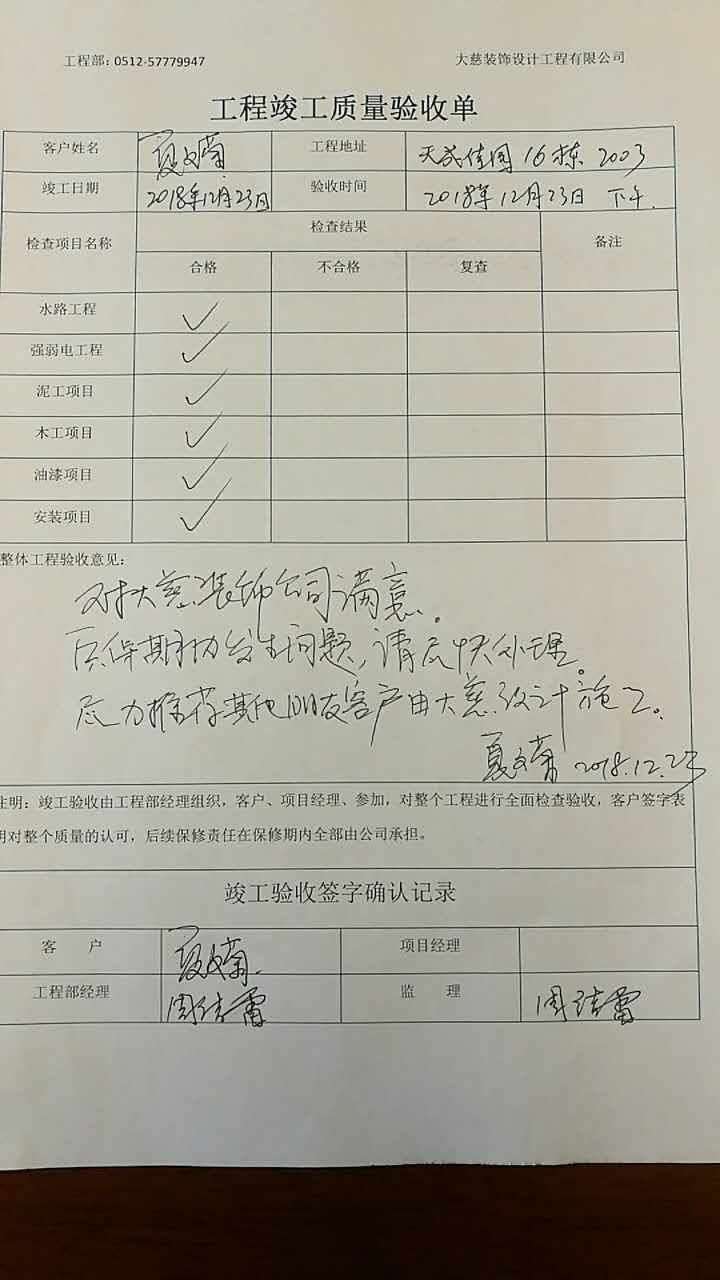 工程部：0512-57779947 大慈装饰设计工程有限公司
工程竣工质量验收单
客户姓名 夏文菊 工程地址 天成佳园 16栋 2003
竣工日期 2018年12月23日 验收时间 2018年12月23日 下午.
检查项目名称 检查结果 备注
合格 不合格 复查
水路工程 ✓
强弱电工程 ✓
泥工项目 ✓
木工项目 ✓
油漆项目 ✓
安装项目 ✓
整体工程验收意见：
对大慈装饰公司满意。
质保期内发生问题，请尽快处理。
尽力推荐其他朋友客户由大慈设计施工。
夏文菊 2018.12.23
注明：竣工验收由工程部经理组织，客户、项目经理、参加，对整个工程进行全面检查验收，客户签字表
明对整个质量的认可，后续保修责任在保修期内全部由公司承担。
竣工验收签字确认记录
客 户 夏文菊. 项目经理
工程部经理 周结雷 监 理 周结雷